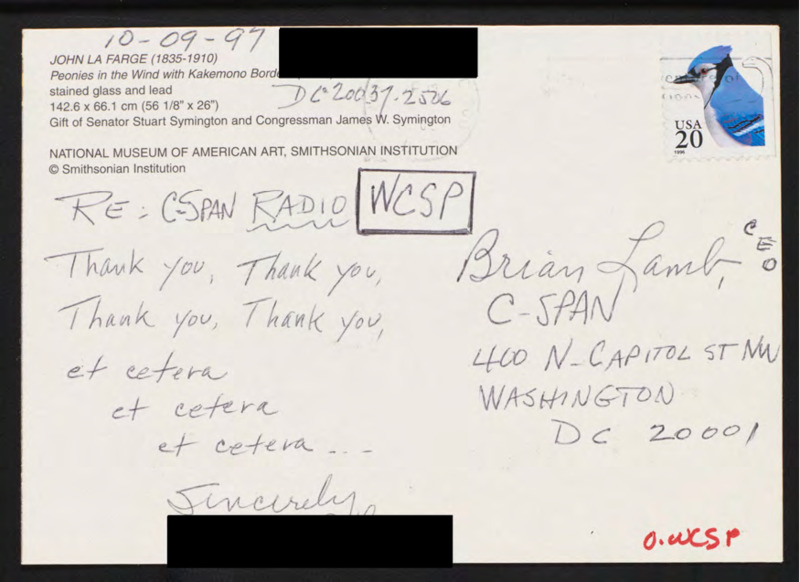 10-09-97
JOHN LA FARGE (1835-1910)
Peonies in the Wind with Kakemono
stained glass and lead
DC 20037-2526
142.6 x 66.1 cm (56 1/8" x 26")
Gift of Senator Stuart Symington and Congressman James W. Symington
NATIONAL MUSEUM OF AMERICAN ART, SMITHSONIAN INSTITUTION
© Smithsonian Institution
USA
20
1996
RE: C-SPAN RADIO WCSP
Thank you, Thank you,
Thank you, Thank you,
et cetera
et cetera
et cetera ...
Sincerely,
Brian Lamb, CEO
C-SPAN
400 N-CAPITOL ST NW
WASHINGTON
DC 20001
O.WCSP